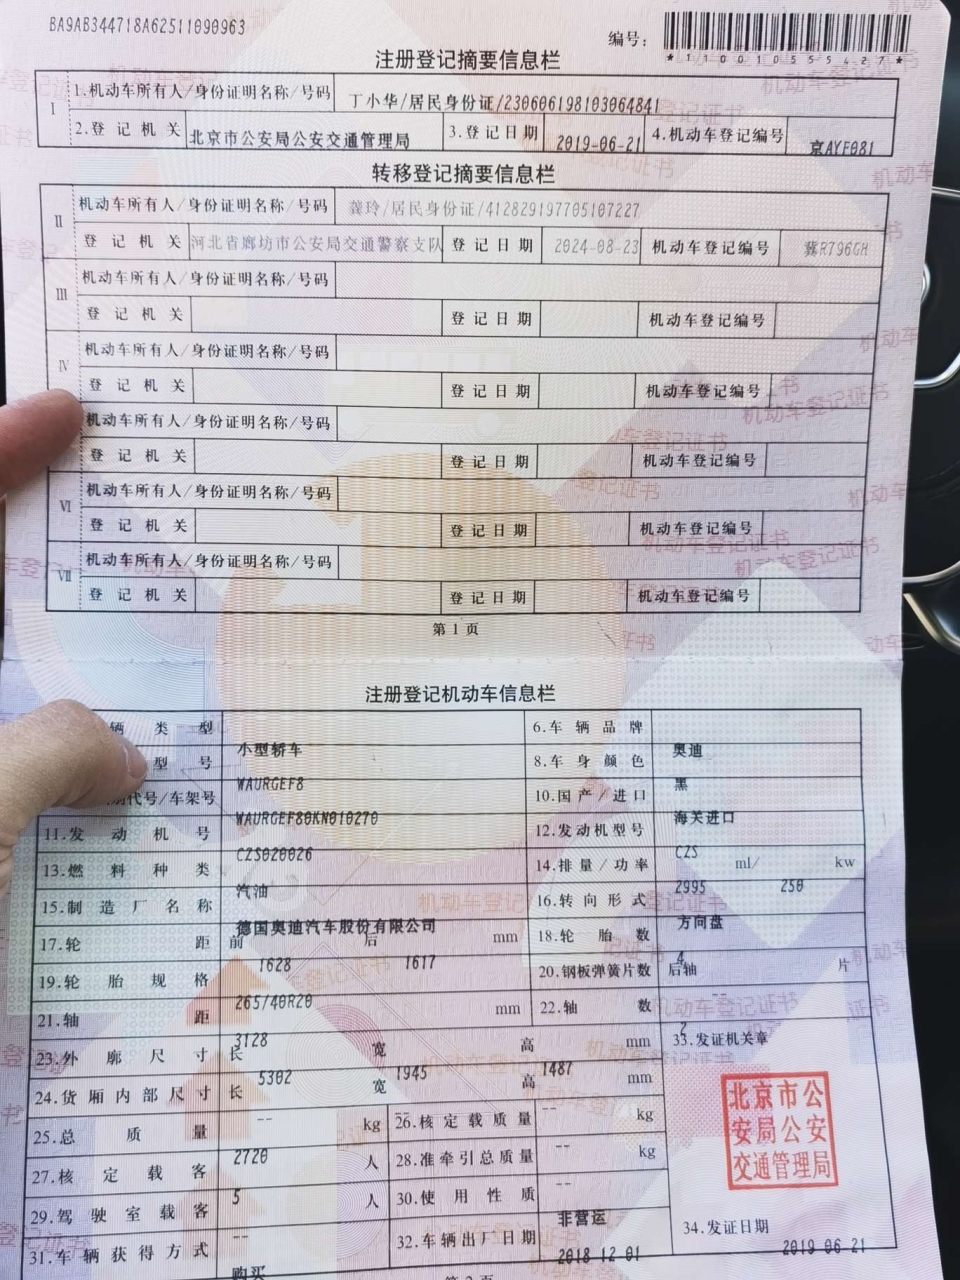 BA9AB344718A62511090963
编号：
*110010555427*
注册登记摘要信息栏
I
1.机动车所有人/身份证明名称/号码 丁小华/居民身份证/230606198103064841
2.登记机关 北京市公安局公安交通管理局 3.登记日期 2019-06-21 4.机动车登记编号 京AYF081
转移登记摘要信息栏
II
机动车所有人/身份证明名称/号码 龚玲/居民身份证/412829197705107227
登记机关 河北省廊坊市公安局交通警察支队 登记日期 2024-08-23 机动车登记编号 冀R796GH
III
机动车所有人/身份证明名称/号码
登记机关 登记日期 机动车登记编号
IV
机动车所有人/身份证明名称/号码
登记机关 登记日期 机动车登记编号
机动车所有人/身份证明名称/号码
登记机关 登记日期 机动车登记编号
VI
机动车所有人/身份证明名称/号码
登记机关 登记日期 机动车登记编号
VII
机动车所有人/身份证明名称/号码
登记机关 登记日期 机动车登记编号
第1页
注册登记机动车信息栏
辆类型 小型轿车 6.车辆品牌 奥迪
型号 WAURGEF8 8.车身颜色 黑
代号/车架号 WAURGEF80KN010270 10.国产/进口 海关进口
11.发动机号 CZS020026 12.发动机型号 CZS
13.燃料种类 汽油 14.排量/功率 2995 ml/ 250 kw
15.制造厂名称 德国奥迪汽车股份有限公司 16.转向形式 方向盘
17.轮距 前 1628 后 1617 mm 18.轮胎数 4
19.轮胎规格 265/40R20 20.钢板弹簧片数 后轴 -- 片
21.轴距 3128 mm 22.轴数 2
23.外廓尺寸 长 5302 宽 1945 高 1487 mm 33.发证机关章
24.货厢内部尺寸 长 -- 宽 -- 高 -- mm
25.总质量 2720 kg 26.核定载质量 -- kg
27.核定载客 5 人 28.准牵引总质量 -- kg
29.驾驶室载客 -- 人 30.使用性质 非营运
31.车辆获得方式 购买 32.车辆出厂日期 2018-12-01
北京市公
安局公安
交通管理局
34.发证日期 2019-06-21